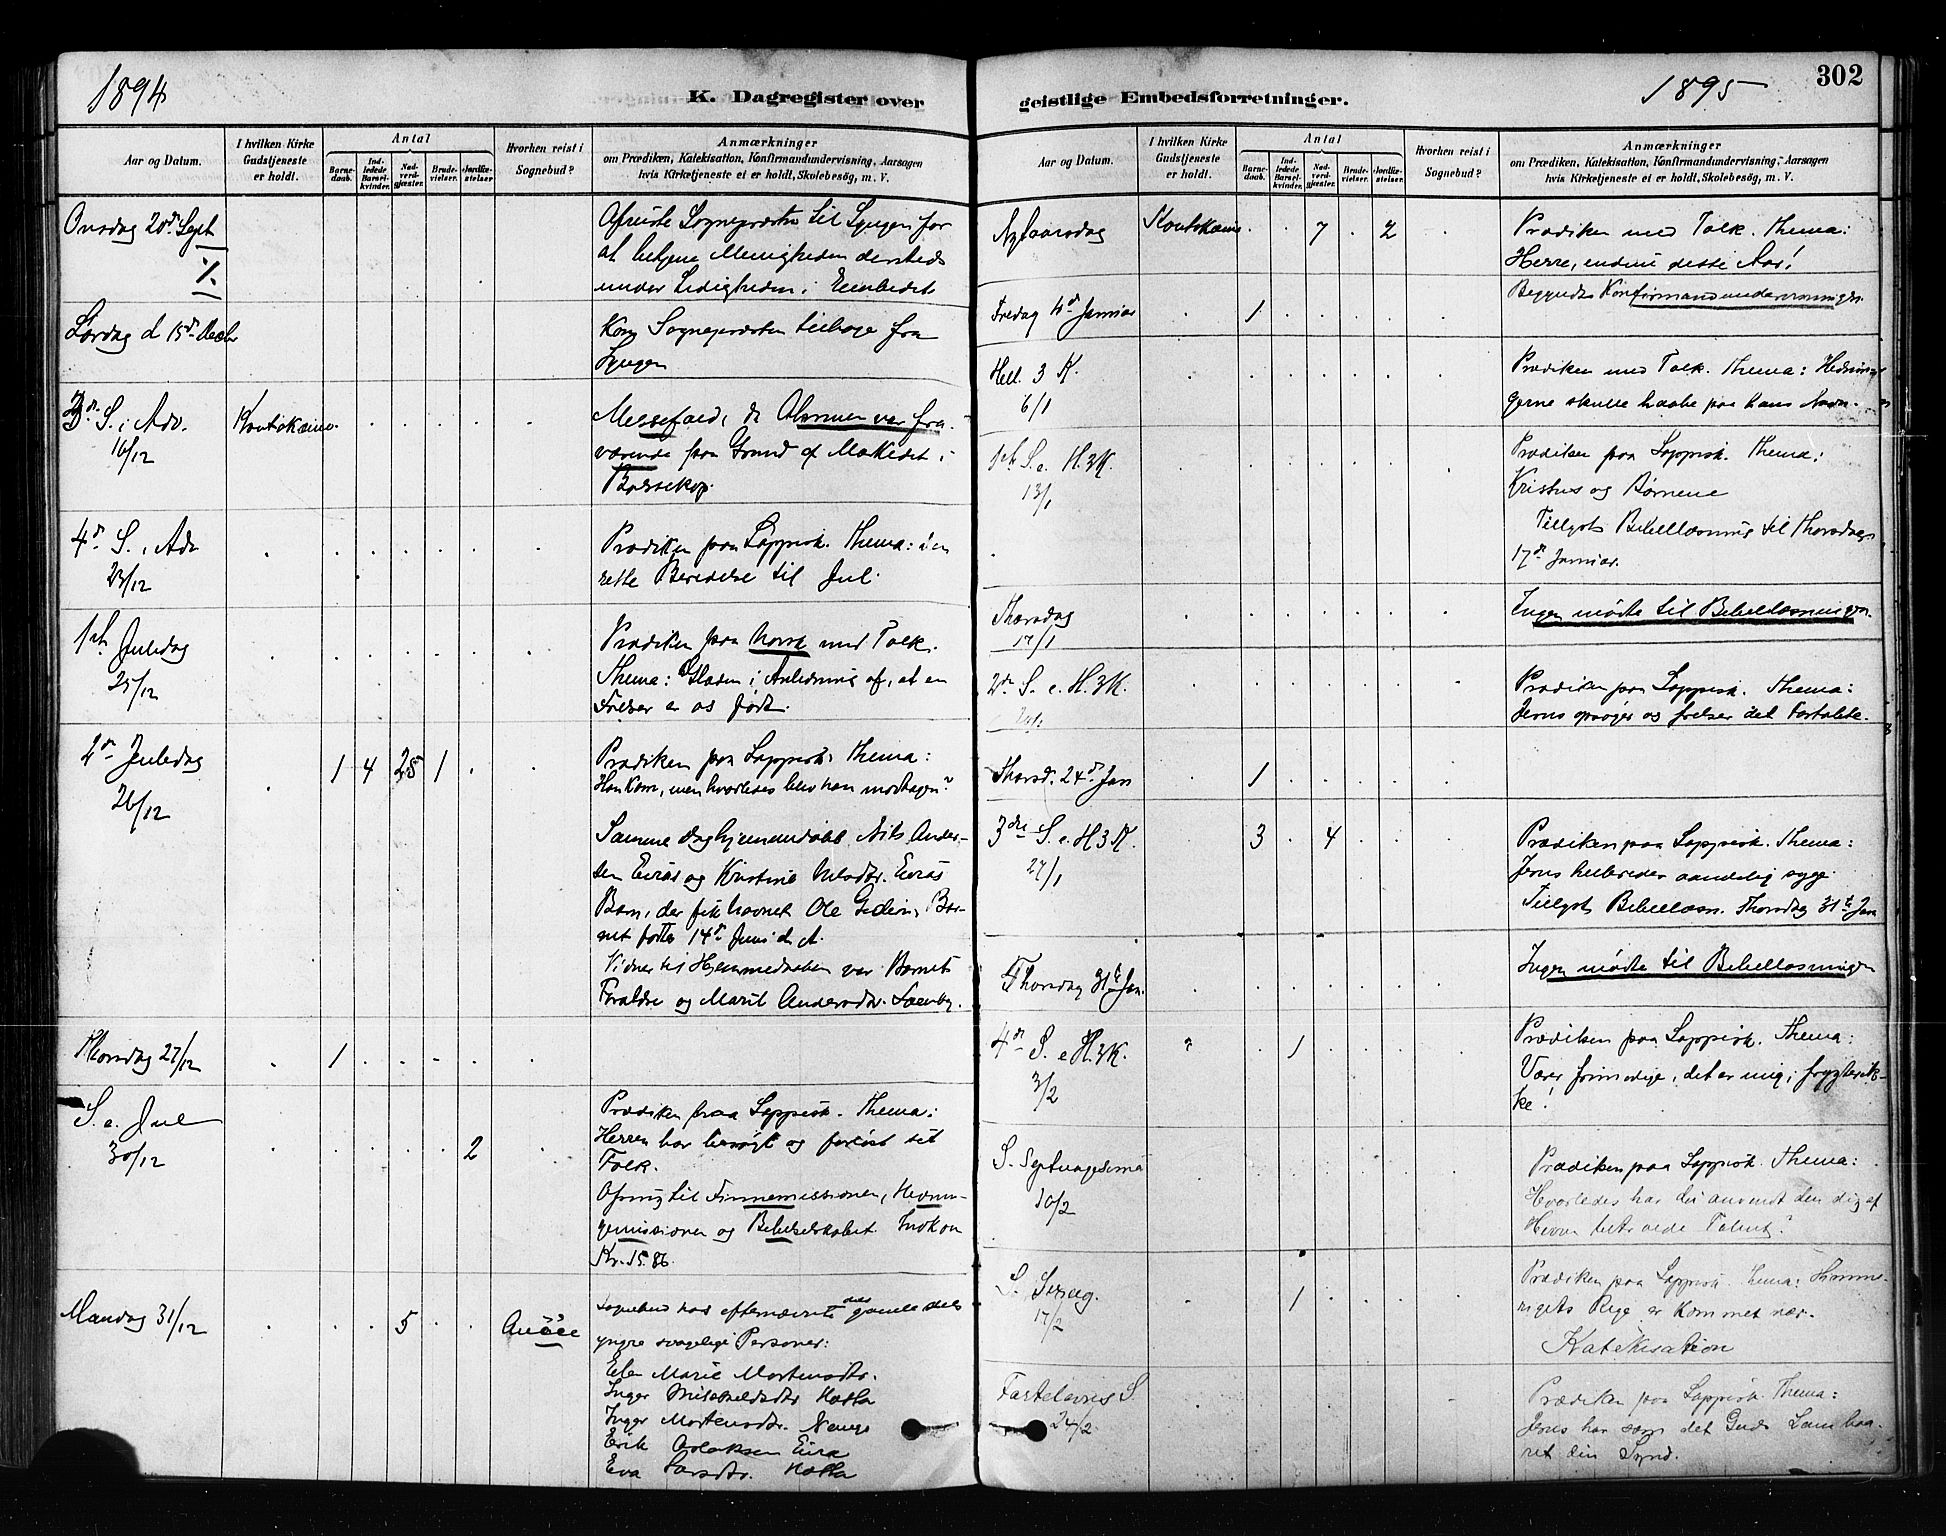 1894
K. Dagregister over
Aar og Datum.
I hvilken Kirke
Gudstjeneste
er holdt.
Antal
Barne-
daab.
Ind-
ledede
Barsel-
kvinder.
Nad-
verd-
gjæster.
Brude-
vielser.
Jordfæ-
stelser
Hvorhen reist i
Sognebud?
Anmærkninger
om Prædiken, Katekisation, Konfirmandundervisning, Aarsagen
hvis Kirketjeneste ei er holdt, Skolebesøg, m. V.
Onsdag 20de Sept
Afreiste Sognepræsten til Lyngen for
at betjene Menigheden dersteds
under Ledigheden i Embedet
Lørdag d 15de Decbr
Kom Sognepræsten tilbage fra
Lyngen
3de S. i Adv. Koutokæino
16/12
Messefald, da Almuen var fra-
værende paa Grund af Markedet i
Bossekop.
4de S. i Adv
23/12
Prædiken paa Lappisk. Thema: den
rette Beredelse til Jul.
1ste Juledag
25/12
Prædiken paa Norsk med Tolk.
Thema: Glæden i Anledning af, at en
Frelser er os født.
2den Juledag 1 4 25 1
26/12
Prædiken paa Lappisk. Thema:
Han kom, men hvorledes blev han modtagen?
Samme Dag hjemmedøbt Nils Ander-
sen Eiras og Kristine Nilsdtr. Eiras
Barn, der fik Navnet Ole Gideon, Bar-
net født 14de Juni d. A.
Vidner til Hjemmedaaben var Barnets
Forældre og Marit Andersdtr.
Thorsdag 27/12 1
S. e. Jul 2
30/12
Prædiken paa Lappisk. Thema:
Herren har besøgt og forløst sit
Folk.
Ofring til Finnemissionen, Hednin-
gemissionen og Bibelselskabet. Indkom
Kr. 15.86.
Mandag 31/12 5
yngre svagelige Personer:
Elen Marie Mortensdtr.
Inger Hætta
Inger Mortensdtr.
Erik Aslaksen Eira
Eva Larsdtr. Hætta
1895
302
geistlige Embedsforretninger.
Aar og Datum.
I hvilken Kirke
Gudstjeneste
er holdt.
Antal
Barne-
daab.
Ind-
ledede
Barsel-
kvinder.
Nad-
verd-
gjæster.
Brude-
vielser.
Jordfæ-
stelser.
Hvorhen reist i
Sognebud?
Anmærkninger
om Prædiken, Katekisation, Konfirmandundervisning, Aarsagen
hvis Kirketjeneste ei er holdt, Skolebesøg, m. V.
Nytaarsdag Koutokæino 7 2
Prædiken med Tolk. Thema:
Herre, endnu dette Aar!
Fredag 4de Januar 1
Begyndte Konfirmandundervisningen.
Hell. 3 K.
6/1
Prædiken med Tolk. Thema: Hednin-
gerne skulle haabe paa hans Navn.
1ste S. e. H. 3 K.
13/1
Prædiken paa Lappisk. Thema:
Kristus og Børnene
Tillyst Bibellæsning til Thorsdag
17de Januar.
Thorsdag
17/1
Ingen mødte til Bibellæsningen.
2den S. e. H. 3 K.
Prædiken paa Lappisk. Thema:
Jesus opsøger og frelser det Fortabte.
Thorsd. 24de Jan 1
3die S. e. H 3 K. 3 4
27/1
Prædiken paa Lappisk. Thema:
Jesus helbreder aandelig syge.
Tillyst Bibellæsn. Thorsdag 31te Jan
Thorsdag 31te Jan.
Ingen mødte til Bibellæsningen
4de S. e H. 3 K. 1
3/2
Prædiken paa Lappisk. Thema:
Værer frimodige, det er mig, frygter ik-
ke!
S. Septuagesima
10/2
Prædiken paa Lappisk. Thema:
Hvorledes har du anvendt den dig af
Herren betroede Talent?
S. Sexag. 1
17/2
Prædiken paa Lappisk. Thema: Himme-
rigets Rige er kommet nær.
Katekisation
Fastelavns S
24/2.
Prædiken paa Lappisk. Thema:
Jesus har som det Guds Lam baa-
ret din Synd.